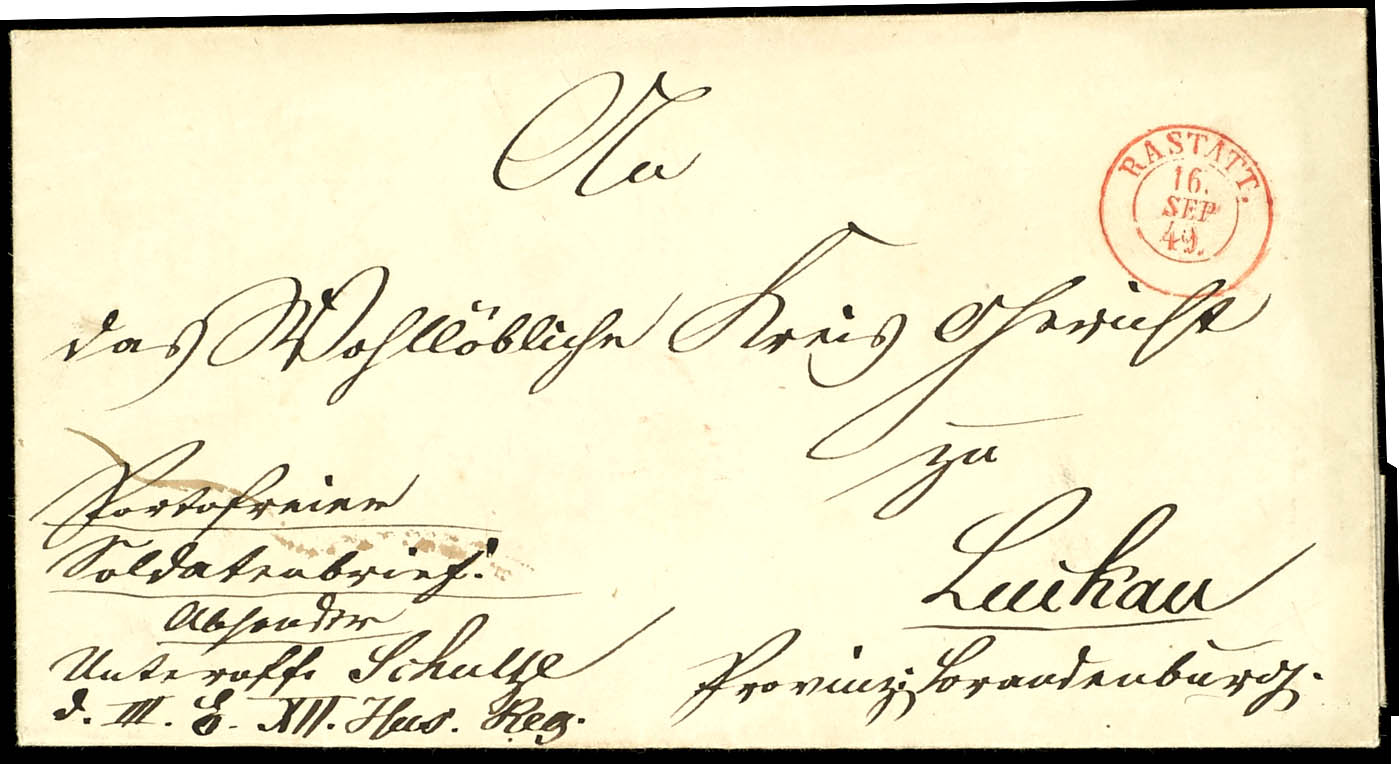 An
RASTATT.
16.
SEP
49.
das Wohllöbliche Kreis Gericht
zu
Luckau
Provinz: Brandenburg.
Portofreier
Soldatenbrief.
Absender
Unteroff. Schultze
d. III. E. XII. Hus. Reg.